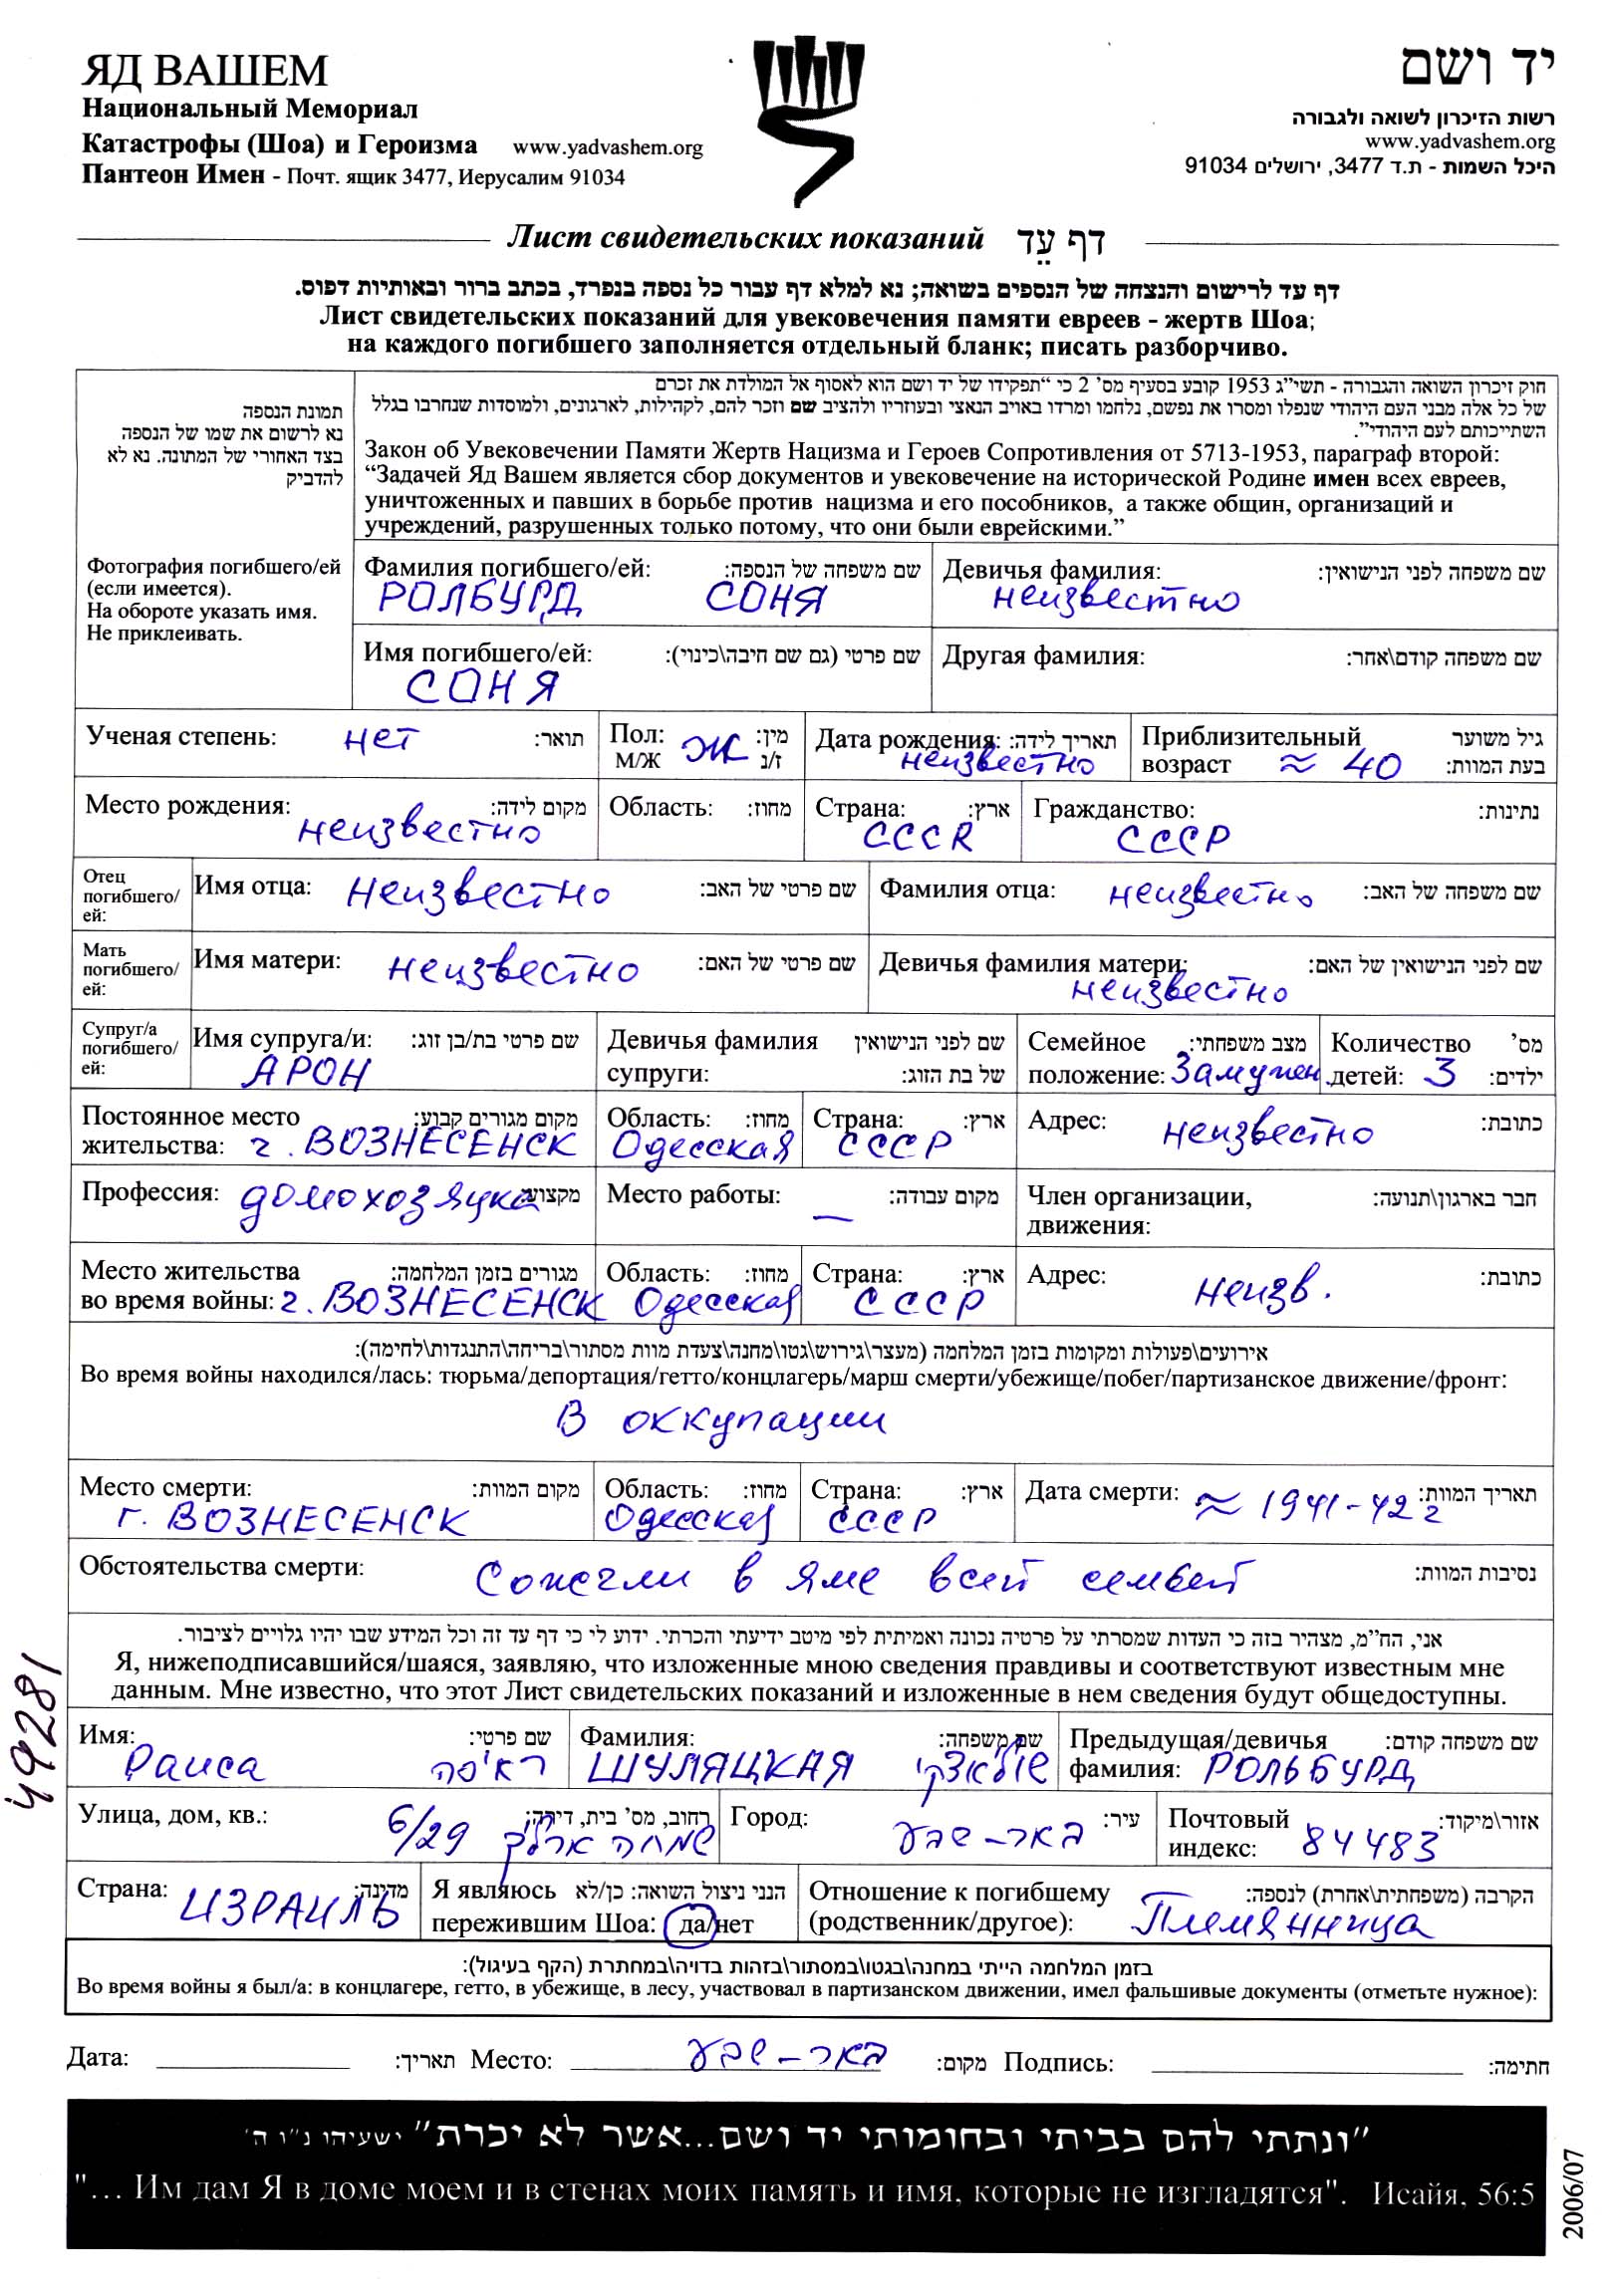 ЯД ВАШЕМ
Национальный Мемориал
Катастрофы (Шоа) и Героизма www.yadvashem.org
Пантеон Имен - Почт. ящик 3477, Иерусалим 91034
יד ושם
רשות הזיכרון לשואה ולגבורה
www.yadvashem.org
היכל השמות - ת.ד 3477, ירושלים 91034
Лист свидетельских показаний דף עֵד
דף עד לרישום והנצחה של הנספים בשואה; נא למלא דף עבור כל נספה בנפרד, בכתב ברור ובאותיות דפוס.
Лист свидетельских показаний для увековечения памяти евреев - жертв Шоа;
на каждого погибшего заполняется отдельный бланк; писать разборчиво.
תמונת הנספה
נא לרשום את שמו של הנספה
בצד האחורי של המתונה. נא לא
להדביק
Фотография погибшего/ей
(если имеется).
На обороте указать имя.
Не приклеивать.
חוק זיכרון השואה והגבורה - תשי"ג 1953 קובע בסעיף מס' 2 כי "תפקידו של יד ושם הוא לאסוף אל המולדת את זכרם
של כל אלה מבני העם היהודי שנפלו ומסרו את נפשם, נלחמו ומרדו באויב הנאצי ובעוזריו ולהציב שם וזכר להם, לקהילות, לארגונים, ולמוסדות שנחרבו בגלל
השתייכותם לעם היהודי".
Закон об Увековечении Памяти Жертв Нацизма и Героев Сопротивления от 5713-1953, параграф второй:
“Задачей Яд Вашем является сбор документов и увековечение на исторической Родине имен всех евреев,
уничтоженных и павших в борьбе против нацизма и его пособников, а также общин, организаций и
учреждений, разрушенных только потому, что они были еврейскими.”
Фамилия погибшего/ей: שם משפחה של הנספה:
РОЛБУРД СОНЯ
Девичья фамилия: שם משפחה לפני הנישואין:
неизвестно
Имя погибшего/ей: שם פרטי (גם שם חיבה\כינוי):
СОНЯ
Другая фамилия: שם משפחה קודם\אחר:
Ученая степень: нет תואר:
Пол: מין:
М/Ж Ж ז/נ
Дата рождения: תאריך לידה:
неизвестно
Приблизительный גיל משוער
возраст ≈ 40 בעת המוות:
Место рождения: מקום לידה:
неизвестно
Область: מחוז:
Страна: ארץ:
СССR
Гражданство: נתינות:
СССР
Отец
погибшего/
ей:
Имя отца: неизвестно שם פרטי של האב:
Фамилия отца: неизвестно שם משפחה של האב:
Мать
погибшего/
ей:
Имя матери: неизвестно שם פרטי של האם:
Девичья фамилия матери: שם לפני הנישואין של האם:
неизвестно
Супруг/а
погибшего/
ей:
Имя супруга/и: שם פרטי בת/בן זוג:
АРОН
Девичья фамилия שם לפני הנישואין
супруги: של בת הזוג:
Семейное מצב משפחתי:
положение: Замужем
Количество מס'
детей: 3 ילדים:
Постоянное место מקום מגורים קבוע:
жительства: г. ВОЗНЕСЕНСК
Область: מחוז:
Одесская
Страна: ארץ:
СССР
Адрес: неизвестно כתובת:
Профессия: домохозяйка מקצוע:
Место работы: — מקום עבודה:
Член организации, חבר בארגון\תנועה:
движения:
Место жительства מגורים בזמן המלחמה:
во время войны: г. ВОЗНЕСЕНСК
Область: מחוז:
Одесская
Страна: ארץ:
СССР
Адрес: неизв. כתובת:
אירועים\פעולות ומקומות בזמן המלחמה (מעצר\גירוש\גטו\מחנה\צעדת מוות מסתור\בריחה\התנגדות\לחימה):
Во время войны находился/лась: тюрьма/депортация/гетто/концлагерь/марш смерти/убежище/побег/партизанское движение/фронт:
В оккупации
Место смерти: מקום המוות:
г. ВОЗНЕСЕНСК
Область: מחוז:
Одесская
Страна: ארץ:
СССР
Дата смерти: ≈ 1941-42 г תאריך המוות:
Обстоятельства смерти: Сожгли в яме всей семьей נסיבות המוות:
אני, הח"מ, מצהיר בזה כי העדות שמסרתי על פרטיה נכונה ואמיתית לפי מיטב ידיעתי והכרתי. ידוע לי כי דף עד זה וכל המידע שבו יהיו גלויים לציבור.
Я, нижеподписавшийся/шаяся, заявляю, что изложенные мною сведения правдивы и соответствуют известным мне
данным. Мне известно, что этот Лист свидетельских показаний и изложенные в нем сведения будут общедоступны.
49281
Имя: שם פרטי:
Раиса ראיסה
Фамилия: שם משפחה:
ШУЛЯЦКАЯ שוליאצקי
Предыдущая/девичья שם משפחה קודם:
фамилия: РОЛЬБУРД
Улица, дом, кв.: 6/29 רחוב, מס' בית, דירה:
Город: באר-שבע עיר:
Почтовый אזור\מיקוד:
индекс: 84483
Страна: ИЗРАИЛЬ מדינה:
Я являюсь הנני ניצול השואה: כן/לא
пережившим Шоа: да/нет
Отношение к погибшему הקרבה (משפחתית\אחרת) לנספה:
(родственник/другое): Племянница
בזמן המלחמה הייתי במחנה\בגטו\במסתור\בזהות בדויה\במחתרת (הקף בעיגול):
Во время войны я был/а: в концлагере, гетто, в убежище, в лесу, участвовал в партизанском движении, имел фальшивые документы (отметьте нужное):
Дата: תאריך: Место: באר-שבע מקום: Подпись: חתימה:
"ונתתי להם בביתי ובחומותי יד ושם...אשר לא יכרת" ישעיהו נ"ו ה'
"... Им дам Я в доме моем и в стенах моих память и имя, которые не изгладятся". Исайя, 56:5
2006/07